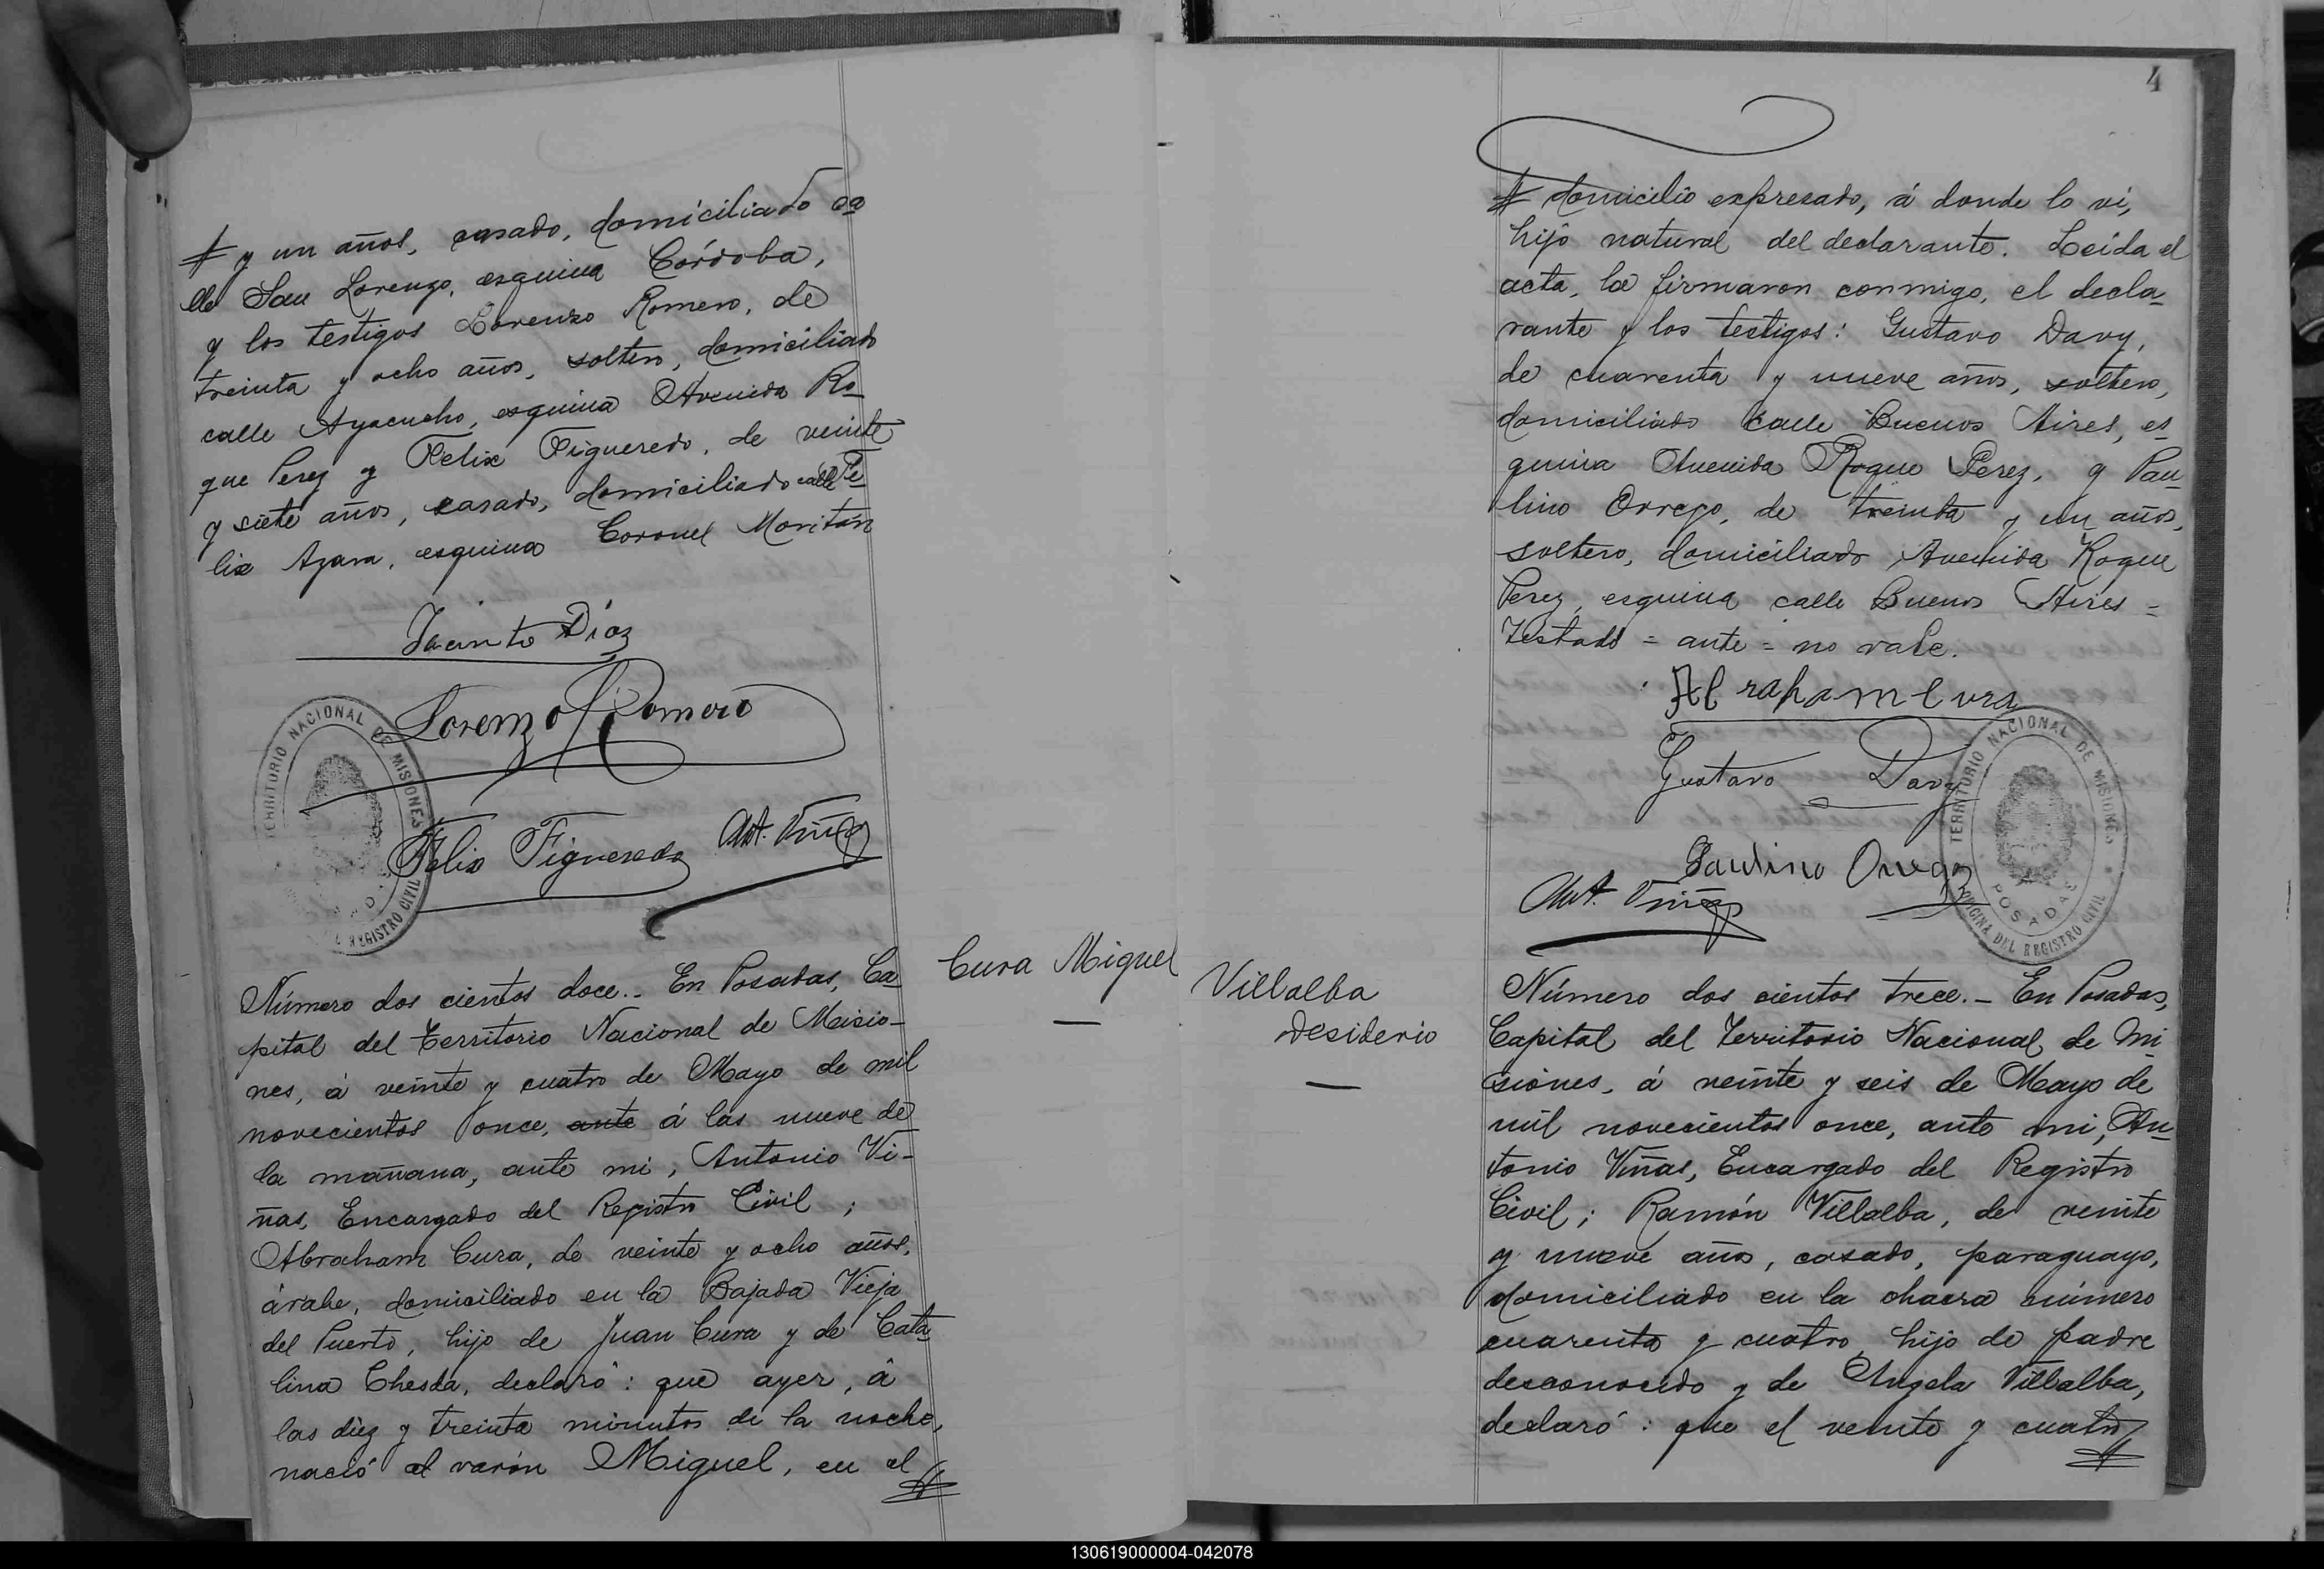 y un años, casado, domiciliado ca
lle San Lorenzo, esquina Córdoba,
y los testigos Lorenzo Romero, de
treinta y ocho años, soltero, domiciliado
calle Ayacucho, esquina Avenida Ro-
que Perez y Felix Figueredo, de veinte
y siete años, casado, domiciliado calle Fe-
lix Azara, esquina Coronel Moritán
Jacinto Diaz
Lorenzo Romero
TERRITORIO NACIONAL DE MISIONES
REGISTRO CIVIL
Felix Figueredo Ant. Viñas
Número dos cientos doce.- En Posadas, Ca-
pital del Territorio Nacional de Misio-
nes, á veinte y cuatro de Mayo de mil
novecientos once, ante á las nueve de
la mañana, ante mi, Antonio Vi-
ñas, Encargado del Registro Civil;
Abraham Cura, de veinte y ocho años,
árabe, domiciliado en la Bajada Vieja
del Puerto, hijo de Juan Cura y de Cata
lina Chesda, declaró: que ayer, á
las diez y treinta minutos de la noche,
nació el varón Miguel, en el
Cura Miguel
4
domicilio expresado, á donde lo vi,
hijo natural del declarante. Leida el
acta, la firmaron conmigo, el decla-
rante y los testigos: Gustavo Davy,
de cuarenta y nueve años, soltero,
domiciliado calle Buenos Aires, es-
quina Avenida Roque Perez, y Pau-
lino Orrego, de treinta y un años,
soltero, domiciliado Avenida Roque
Perez, esquina calle Buenos Aires =
Testado = ante = no vale.
Abraham Cura
Gustavo Davy
Paulino Orrego
Ant. Viñas
TERRITORIO NACIONAL DE MISIONES
POSADAS
OFICINA DEL REGISTRO CIVIL
Villalba
Desiderio
Número dos cientos trece.- En Posadas,
Capital del Territorio Nacional de Mi-
siones, á veinte y seis de Mayo de
mil novecientos once, ante mi, An-
tonio Viñas, Encargado del Registro
Civil; Ramón Villalba, de veinte
y nueve años, casado, paraguayo,
domiciliado en la chacra número
cuarenta y cuatro, hijo de padre
desconocido y de Angela Villalba,
declaró: que el veinte y cuatro
130619000004-042078